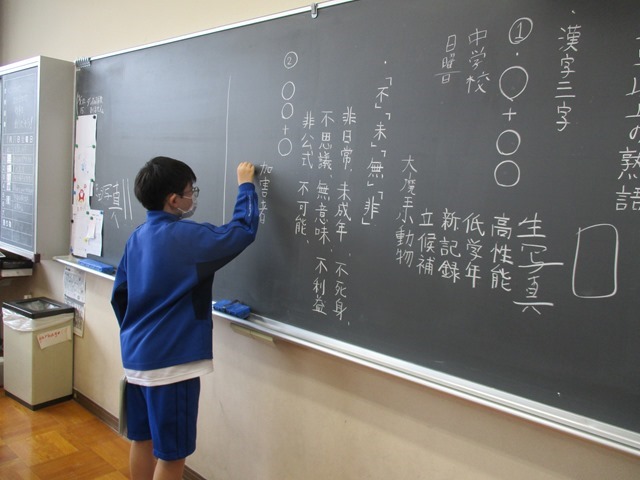 以上の熟語
・漢字三字
①・○+○○
中学校
日曜日
生写真
高性能
低学年
新記録
立候補
小動物
・「不」「未」「無」「非」
非日常、未成年、不死身、
不思議、無意味、不利益
非公式、不可能、
②○○+○
加害者
写真